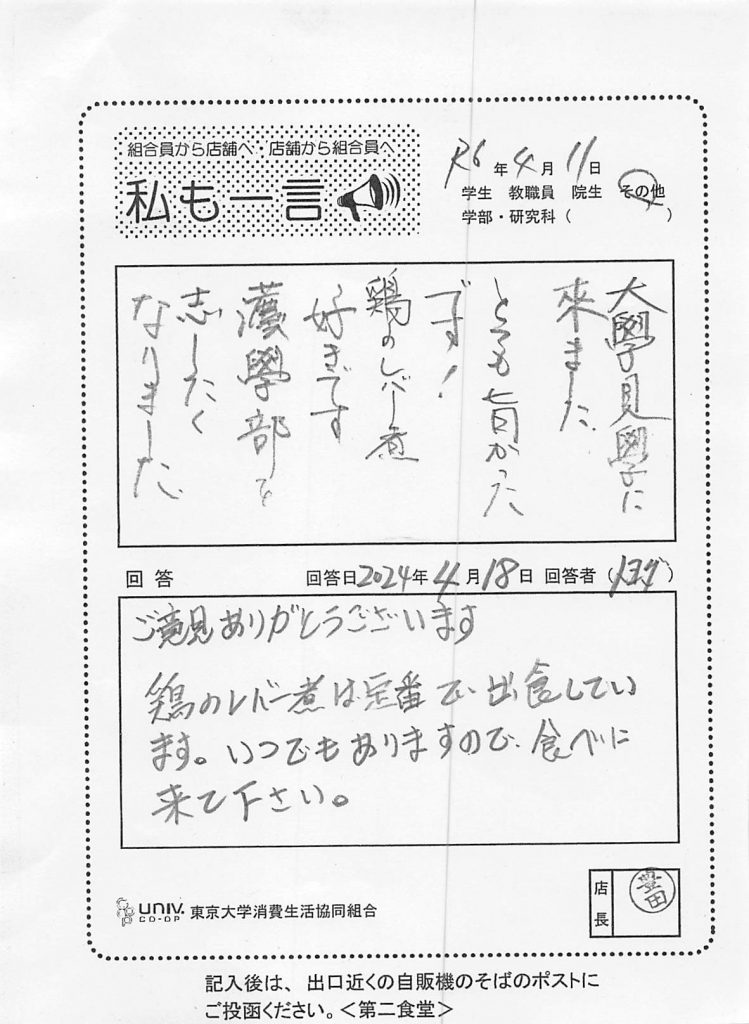 組合員から店舗へ・店舗から組合員へ
私も一言
R6年4月11日
学生 教職員 院生 その他
学部・研究科（ ）
大學見學に
來ました
とても旨かった
です!
鶏のレバー煮
好きです
學部を
志したく
なりました
回答 回答日2024年4月18日 回答者（ ）
ご意見ありがとうございます
鶏のレバー煮は定番で、出食してい
ます。いつでもありますので、食べに
来て下さい。
UNIV.
CO-OP
東京大学消費生活協同組合
店長
豊田
記入後は、出口近くの自販機のそばのポストに
ご投函ください。＜第二食堂＞